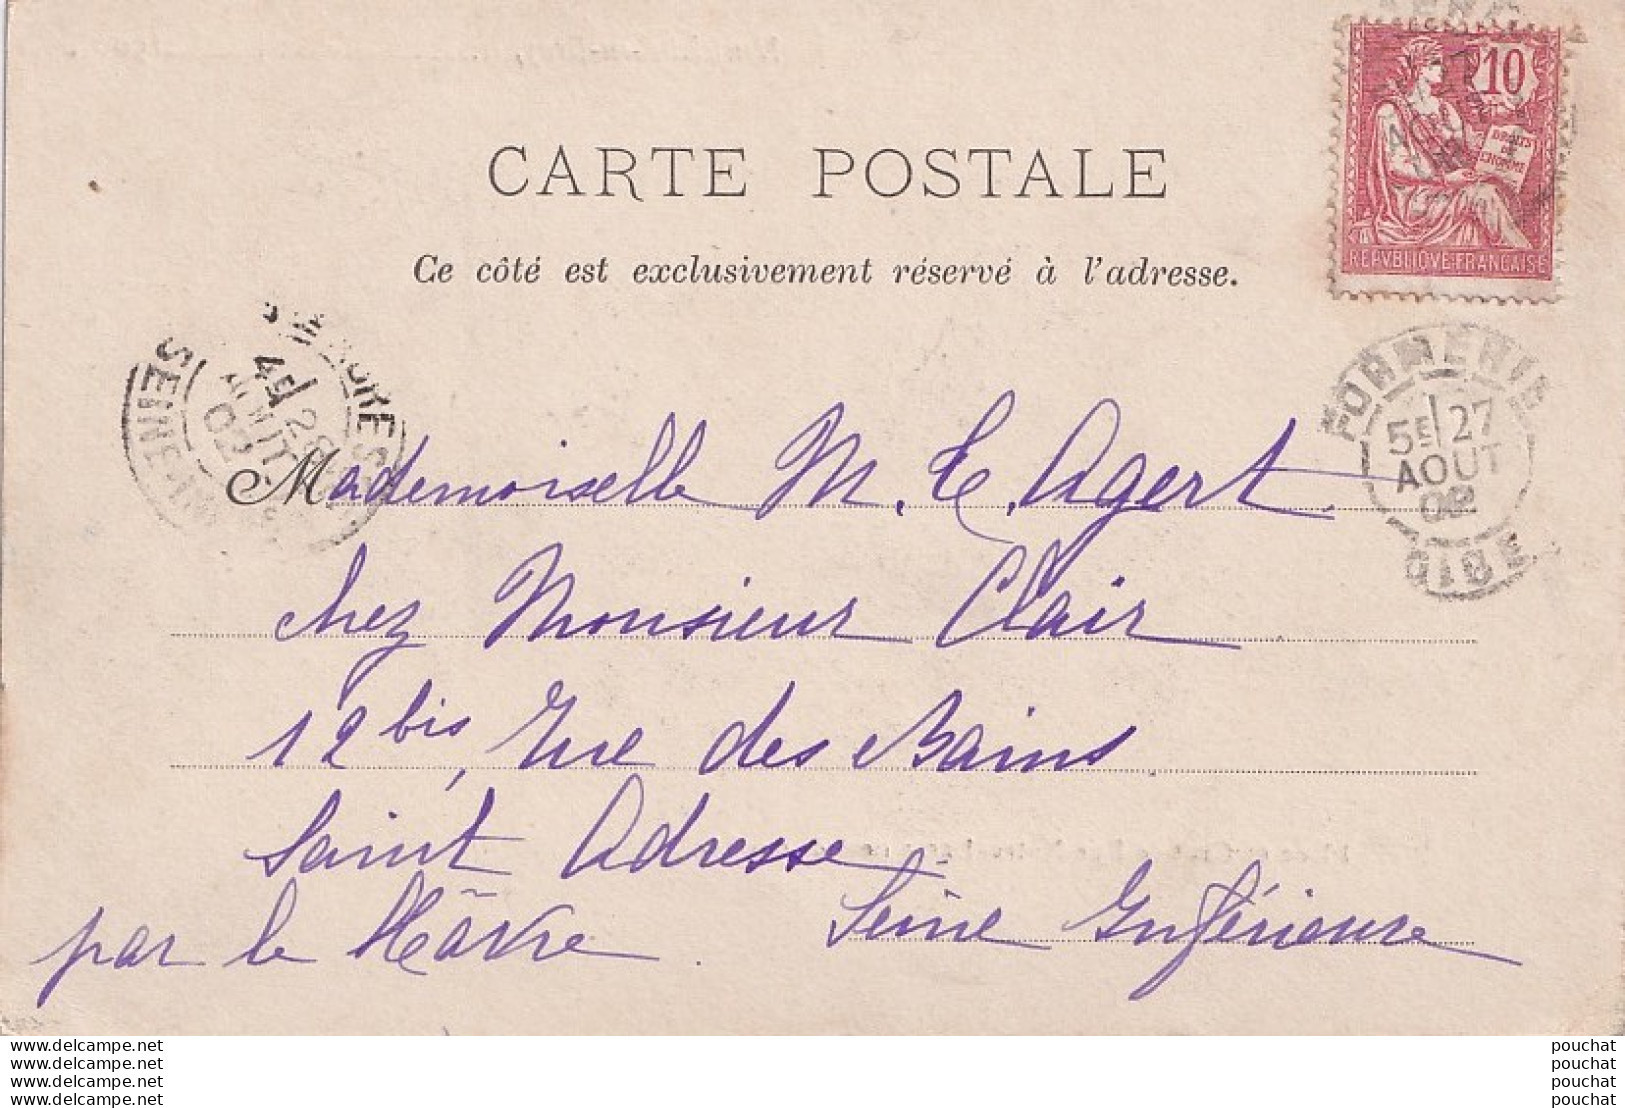 10
DROITS
DE
L'HOMME
REPVBLIQVE FRANÇAISE
CARTE POSTALE
Ce côté est exclusivement réservé à l'adresse.
FORMERIE
5E 27
AOUT
02
OISE
4E 28
AOUT
02
SEINE-INF
Mademoiselle M. E. Agert
chez Monsieur Clair
12 bis, Rue des Bains
Saint Adresse
par le Hâvre. Seine Inférieure
www.delcampe.net
www.delcampe.net
www.delcampe.net
www.delcampe.net
pouchat
pouchat
pouchat
pouchat